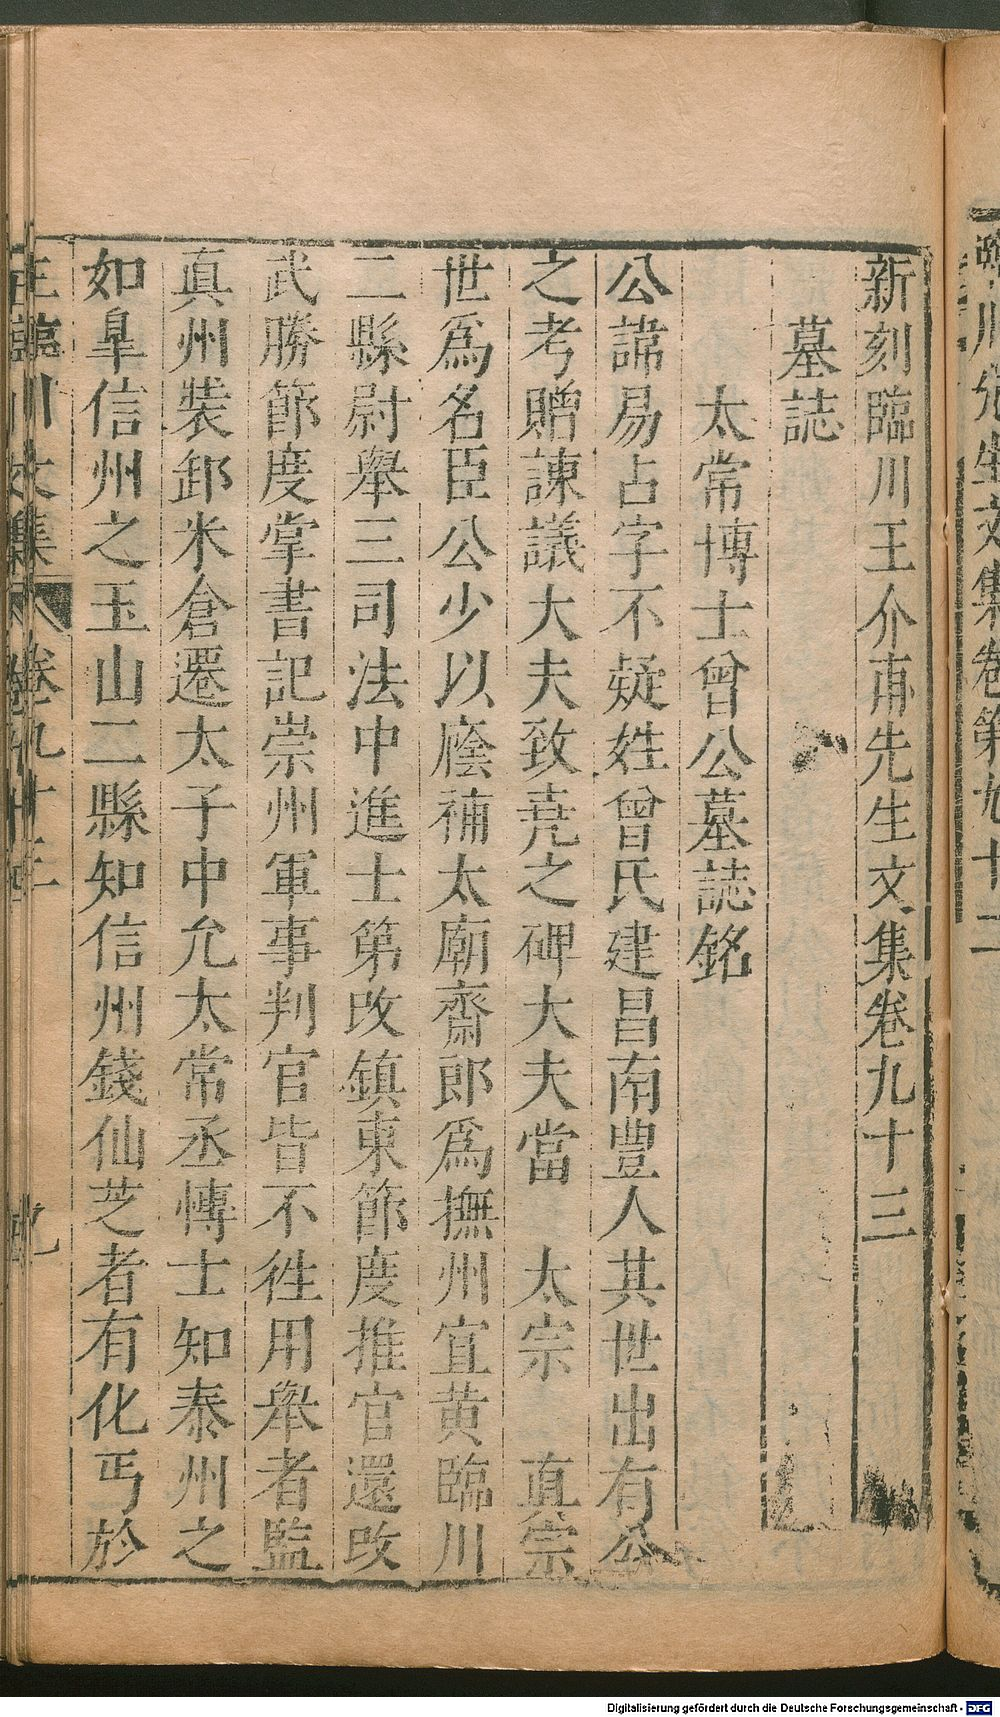 新刻臨川王介甫先生文集卷九十三
墓誌
太常博士曾公墓誌銘
公諱易占字不疑姓曾氏建昌南豐人其世出有公
之考贈諫議大夫致堯之碑大夫當 太宗 真宗
世爲名臣公少以廕補太廟齋郎爲撫州宜黄臨川
二縣尉舉三司法中進士第改鎮東節度推官還改
武勝節度掌書記崇州軍事判官皆不徃用舉者監
真州裝卸米倉遷太子中允太常丞博士知泰州之
如臯信州之玉山二縣知信州錢仙芝者有化丐於
王臨川文集 卷九十三
Digitalisierung gefördert durch die Deutsche Forschungsgemeinschaft - DFG